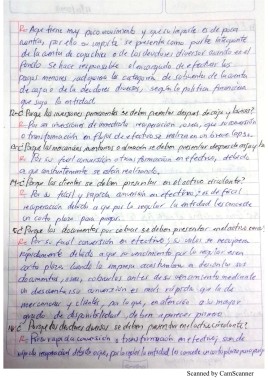 R= Aqui tiene muy poco movimiento y que su importe es de poca
cuantia, por ello se presenta como parte integrante
de la cuenta de caja chica o de los deudores diversos cuando en el
fondo se hace responsable al encargado de efectuar los
pagos menores
de caja o de la deudores diversos, según la política financiera
que siga la entidad
12-¿ Porqué las inversiones temporales se deben presentar después de caja y bancos?
R= Por ser inversiones de inmediata recuperación, ya que su conversión
o transformación en flujo de efectivo se realiza en un breve lapso.
13-¿ Porqué las mercancías, inventarios o almacén se deben presentar después de caja y la
R= Por su fácil conversión o transformación en efectivo, debido
a que constantemente se están realizando.
14-¿ Porqué los clientes se deben presentar en el activo circulante?
R= Por su fácil y rápida conversión en efectivo; es de fácil
recuperación debido a que por lo regular la entidad les concede
un corto plazo para pagar.
15-¿ Porqué los documentos por cobrar se deben presentar en el activo circ
R= Por su fácil conversión en efectivo; su valor se recupera
rápidamente debido a que su vencimiento por lo regular es en
corto plazo, cuando la empresa acostumbra a descontar sus
documentos, estos, cobrarlos antes de su vencimiento mediante
un descuento su conversión es más rápida que la de
mercancías y clientes, por lo que, en atención a su mayor
grado de disponibilidad, deben aparecer primero
16-¿ Porqué los deudores diversos se deben presentar en el activo circulante?
R= Por su rápida conversión o transformación en efectivo, son de
rápida recuperación debido a que, por lo regular la entidad les concede un corto plazo para pagar
Scanned by CamScanner